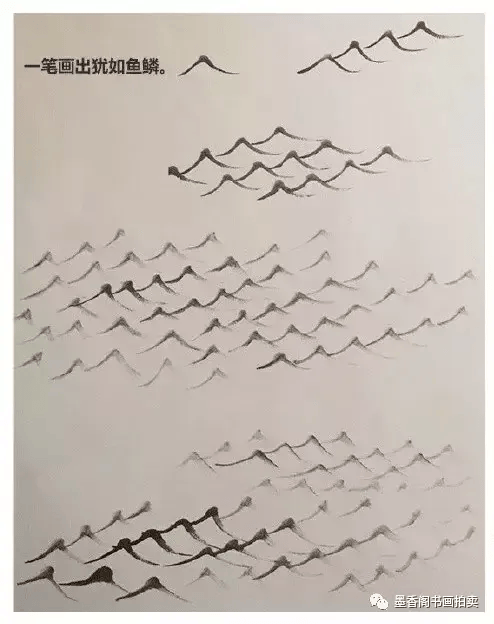 一笔画出犹如鱼鳞。
墨香阁书画拍卖